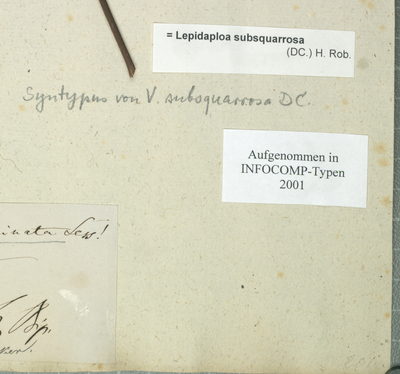 = Lepidaploa subsquarrosa
(DC.) H. Rob.
Syntypus von V. subsquarrosa DC.
Aufgenommen in
INFOCOMP-Typen
2001
inata Less!
Bip.